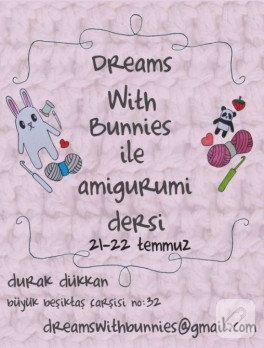 Dreams
With
Bunnies
ile
amigurumi
dersi
21-22 temmuz
durak dükkan
büyük beşiktaş çarşisi no:32
dreamswithbunnies@gmail.com